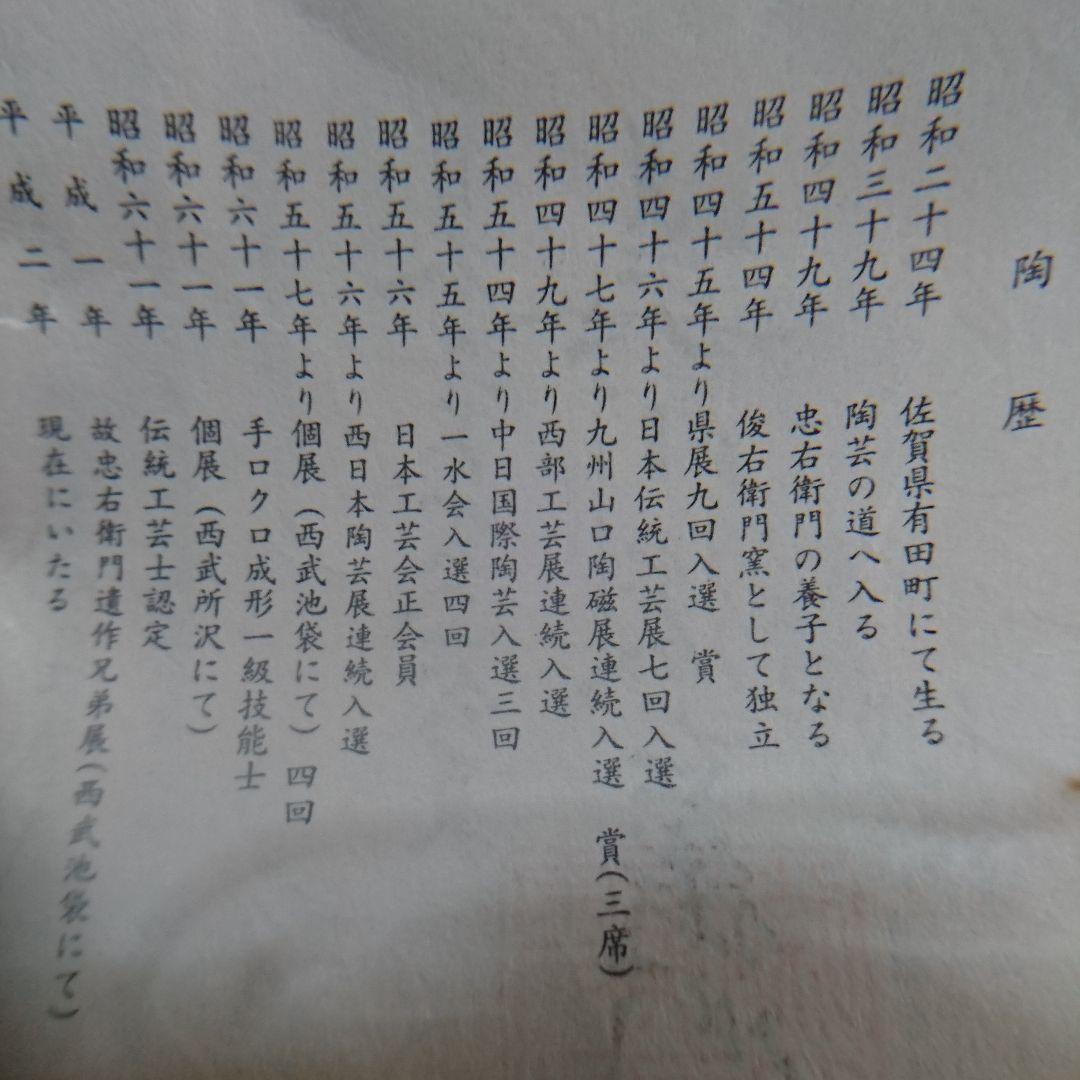 陶歴
昭和二十四年　佐賀県有田町にて生る
昭和三十九年　陶芸の道へ入る
昭和四十九年　忠右衛門の養子となる
昭和五十四年　俊右衛門窯として独立
昭和四十五年より県展九回入選　賞
昭和四十六年より日本伝統工芸展七回入選
昭和四十七年より九州山口陶磁展連続入選　賞(三席)
昭和四十九年より西部工芸展連続入選
昭和五十四年より中日国際陶芸入選三回
昭和五十五年より一水会入選四回
昭和五十六年　日本工芸会正会員
昭和五十六年より西日本陶芸展連続入選
昭和五十七年より個展(西武池袋にて)四回
昭和六十一年　手ロクロ成形一級技能士
昭和六十一年　個展(西武所沢にて)
昭和六十一年　伝統工芸士認定
平成一年　故忠右衛門遺作兄弟展(西武池袋にて)
平成二年　現在にいたる